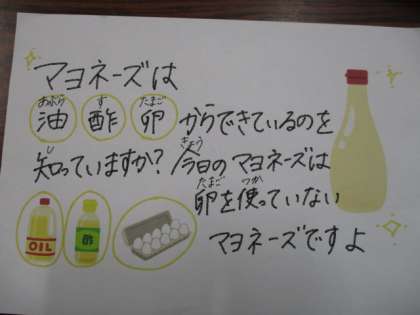 マヨネーズは
油 酢 卵 からできているのを
知っていますか? 今日のマヨネーズは
卵を使っていない
マヨネーズですよ
あぶら
す
たまご
し
きょう
たまご
つか
OIL
酢